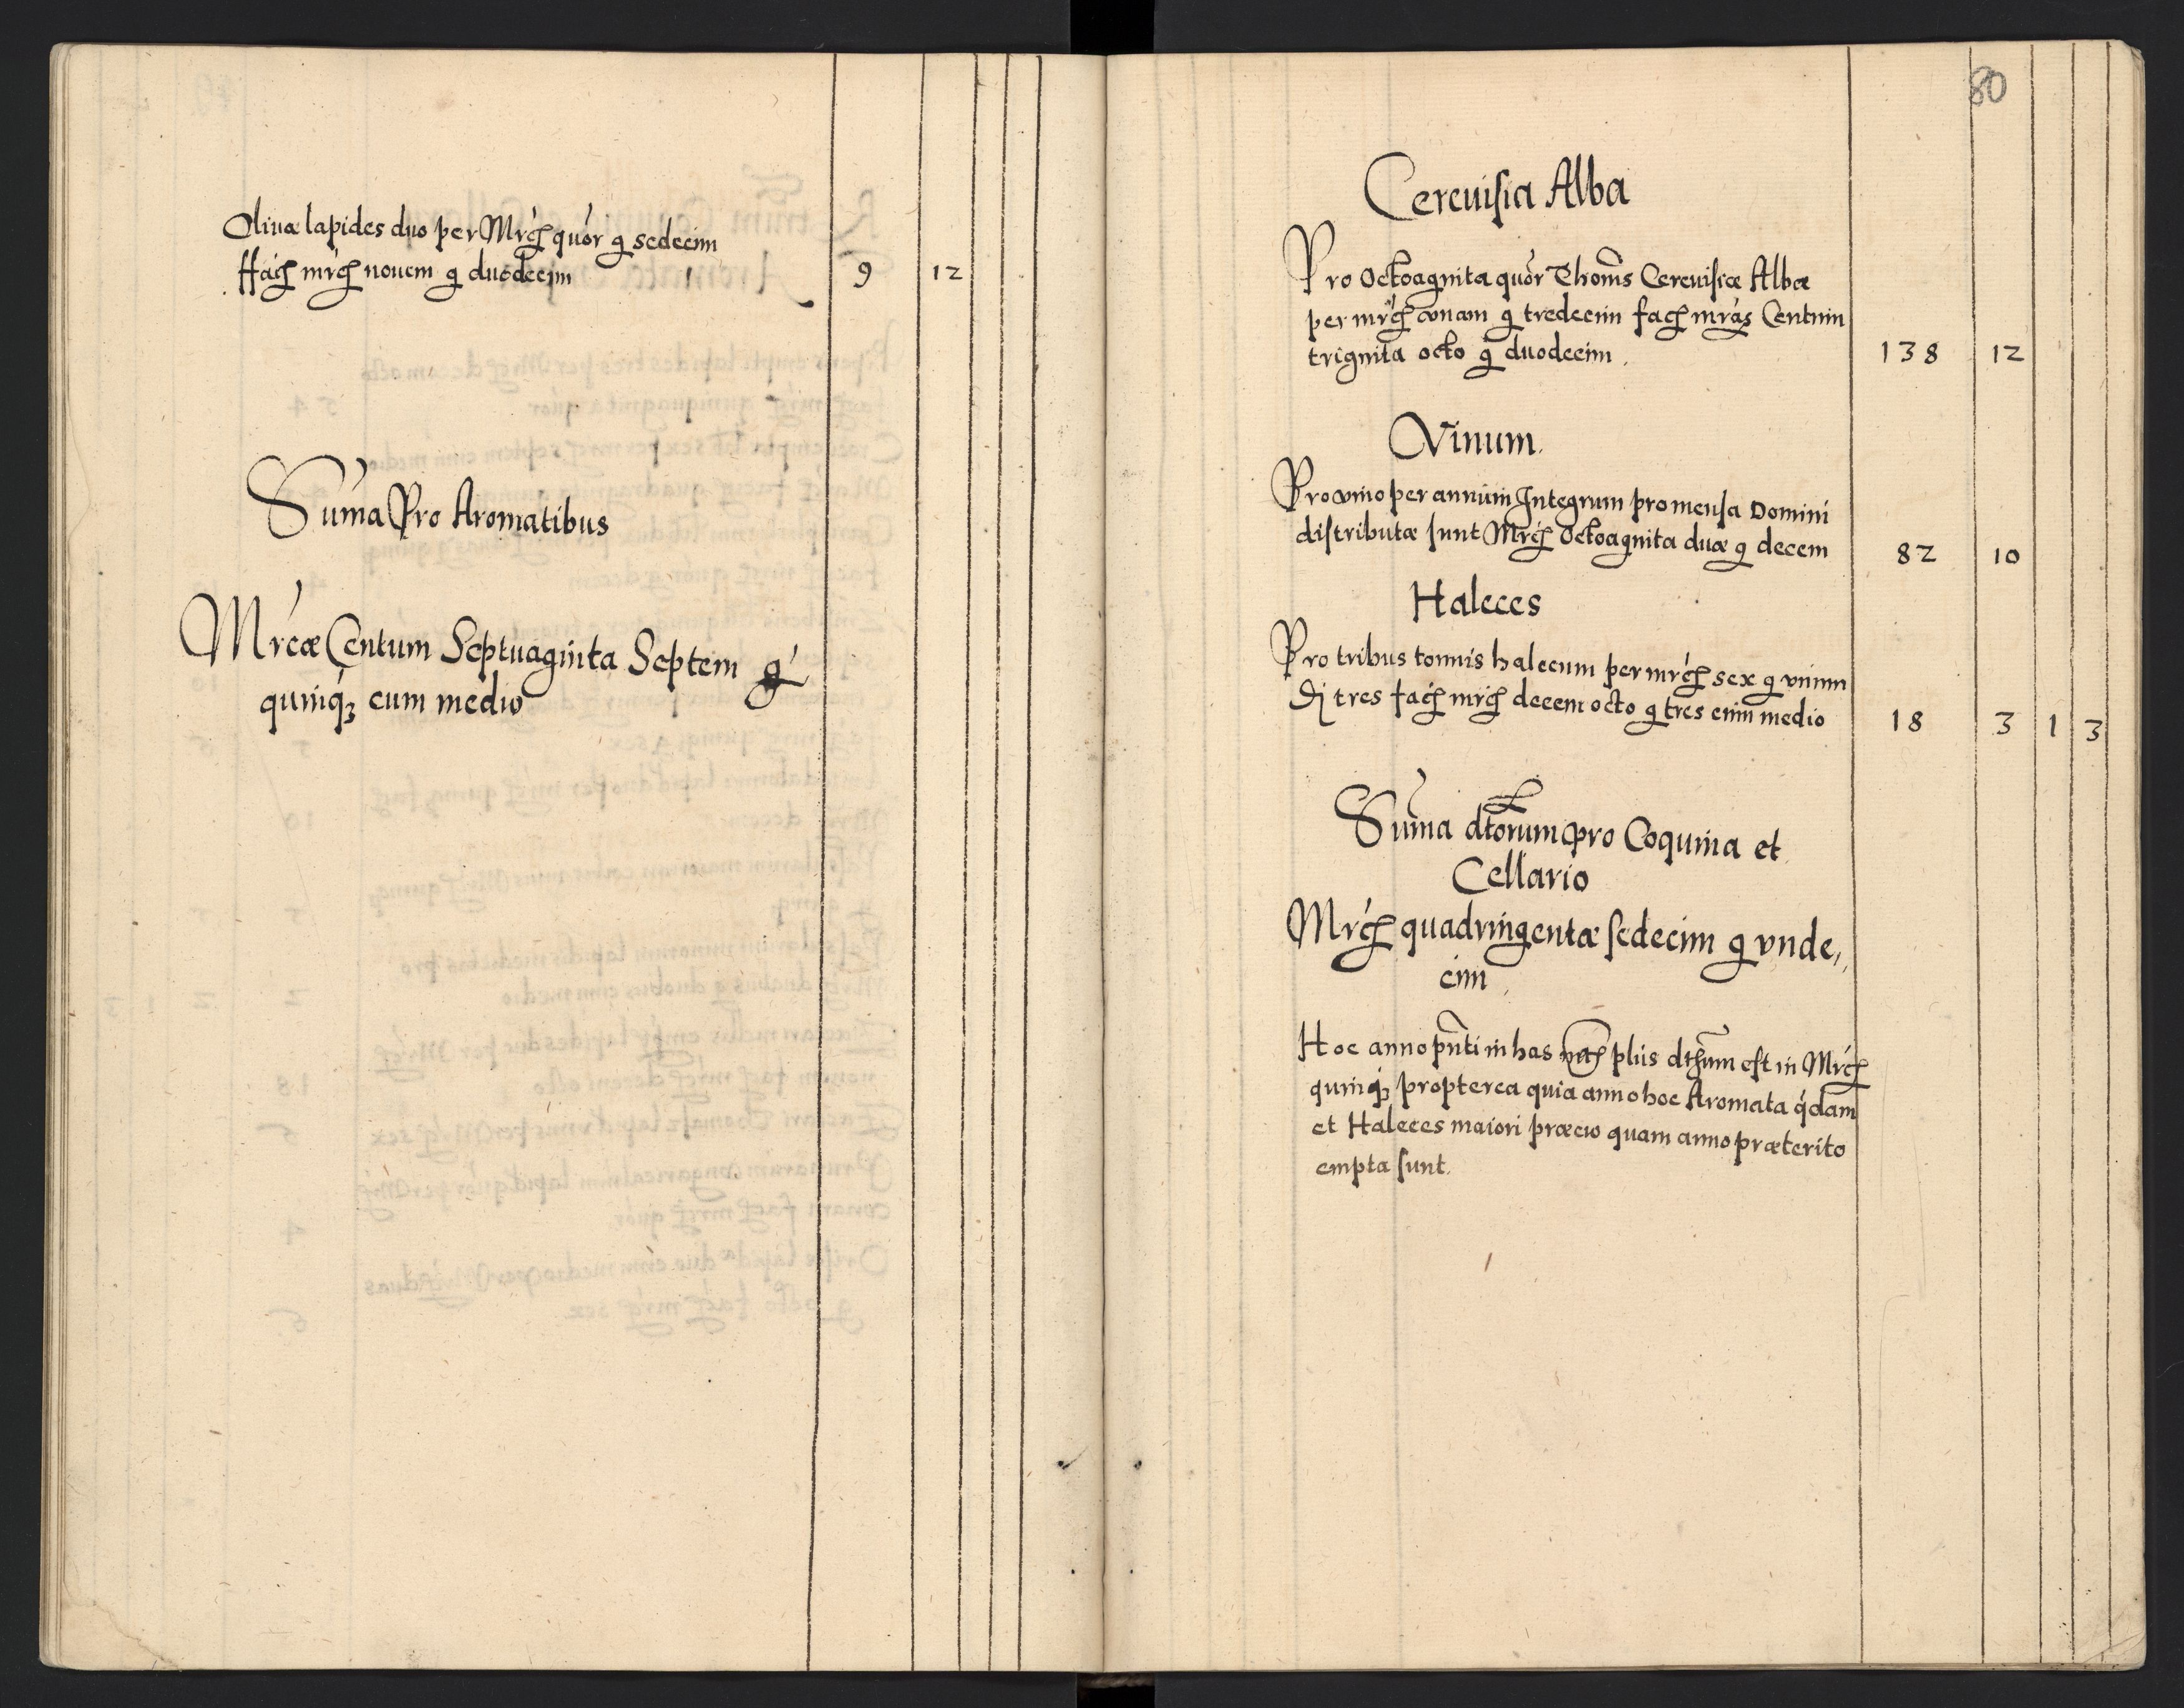 Oliuæ lapides duo per Mrcɧ quor g sedecim
ffacɧ mrcɧ nouem g duodecim 9 12
Suma Pro Aromatibus
Mrcæ Centum Septuaginta Septem g
quinqꝫ cum medio
80
Cereuisia Alba
Pro Octoaginta quor Thonis Cereuisiæ Albæ
per mrcɧ vnam g tredecim facɧ mras Centum
triginta octo g duodecim 138 12
Vinum.
Pro vino per annum Integrum pro mensa Domini
distributæ sunt Mrcɧ Octoaginta duæ g decem 82 10
Haleces
Pro tribus tonnis halecum per mrcɧ sex g vnum
Ꝺ tres facɧ mrcɧ decem octo g tres cum medio 18 3 1 3
Suma dtorum pro Coquina et
Cellario
Mrcɧ quadringentæ sedecim g vnde,,
cim
Hoc anno pnti in has plus dtum est in Mrcɧ
quinqꝫ propterea quia anno hoc Aromata qdam
et Haleces maiori præcio quam anno præterito
empta sunt.